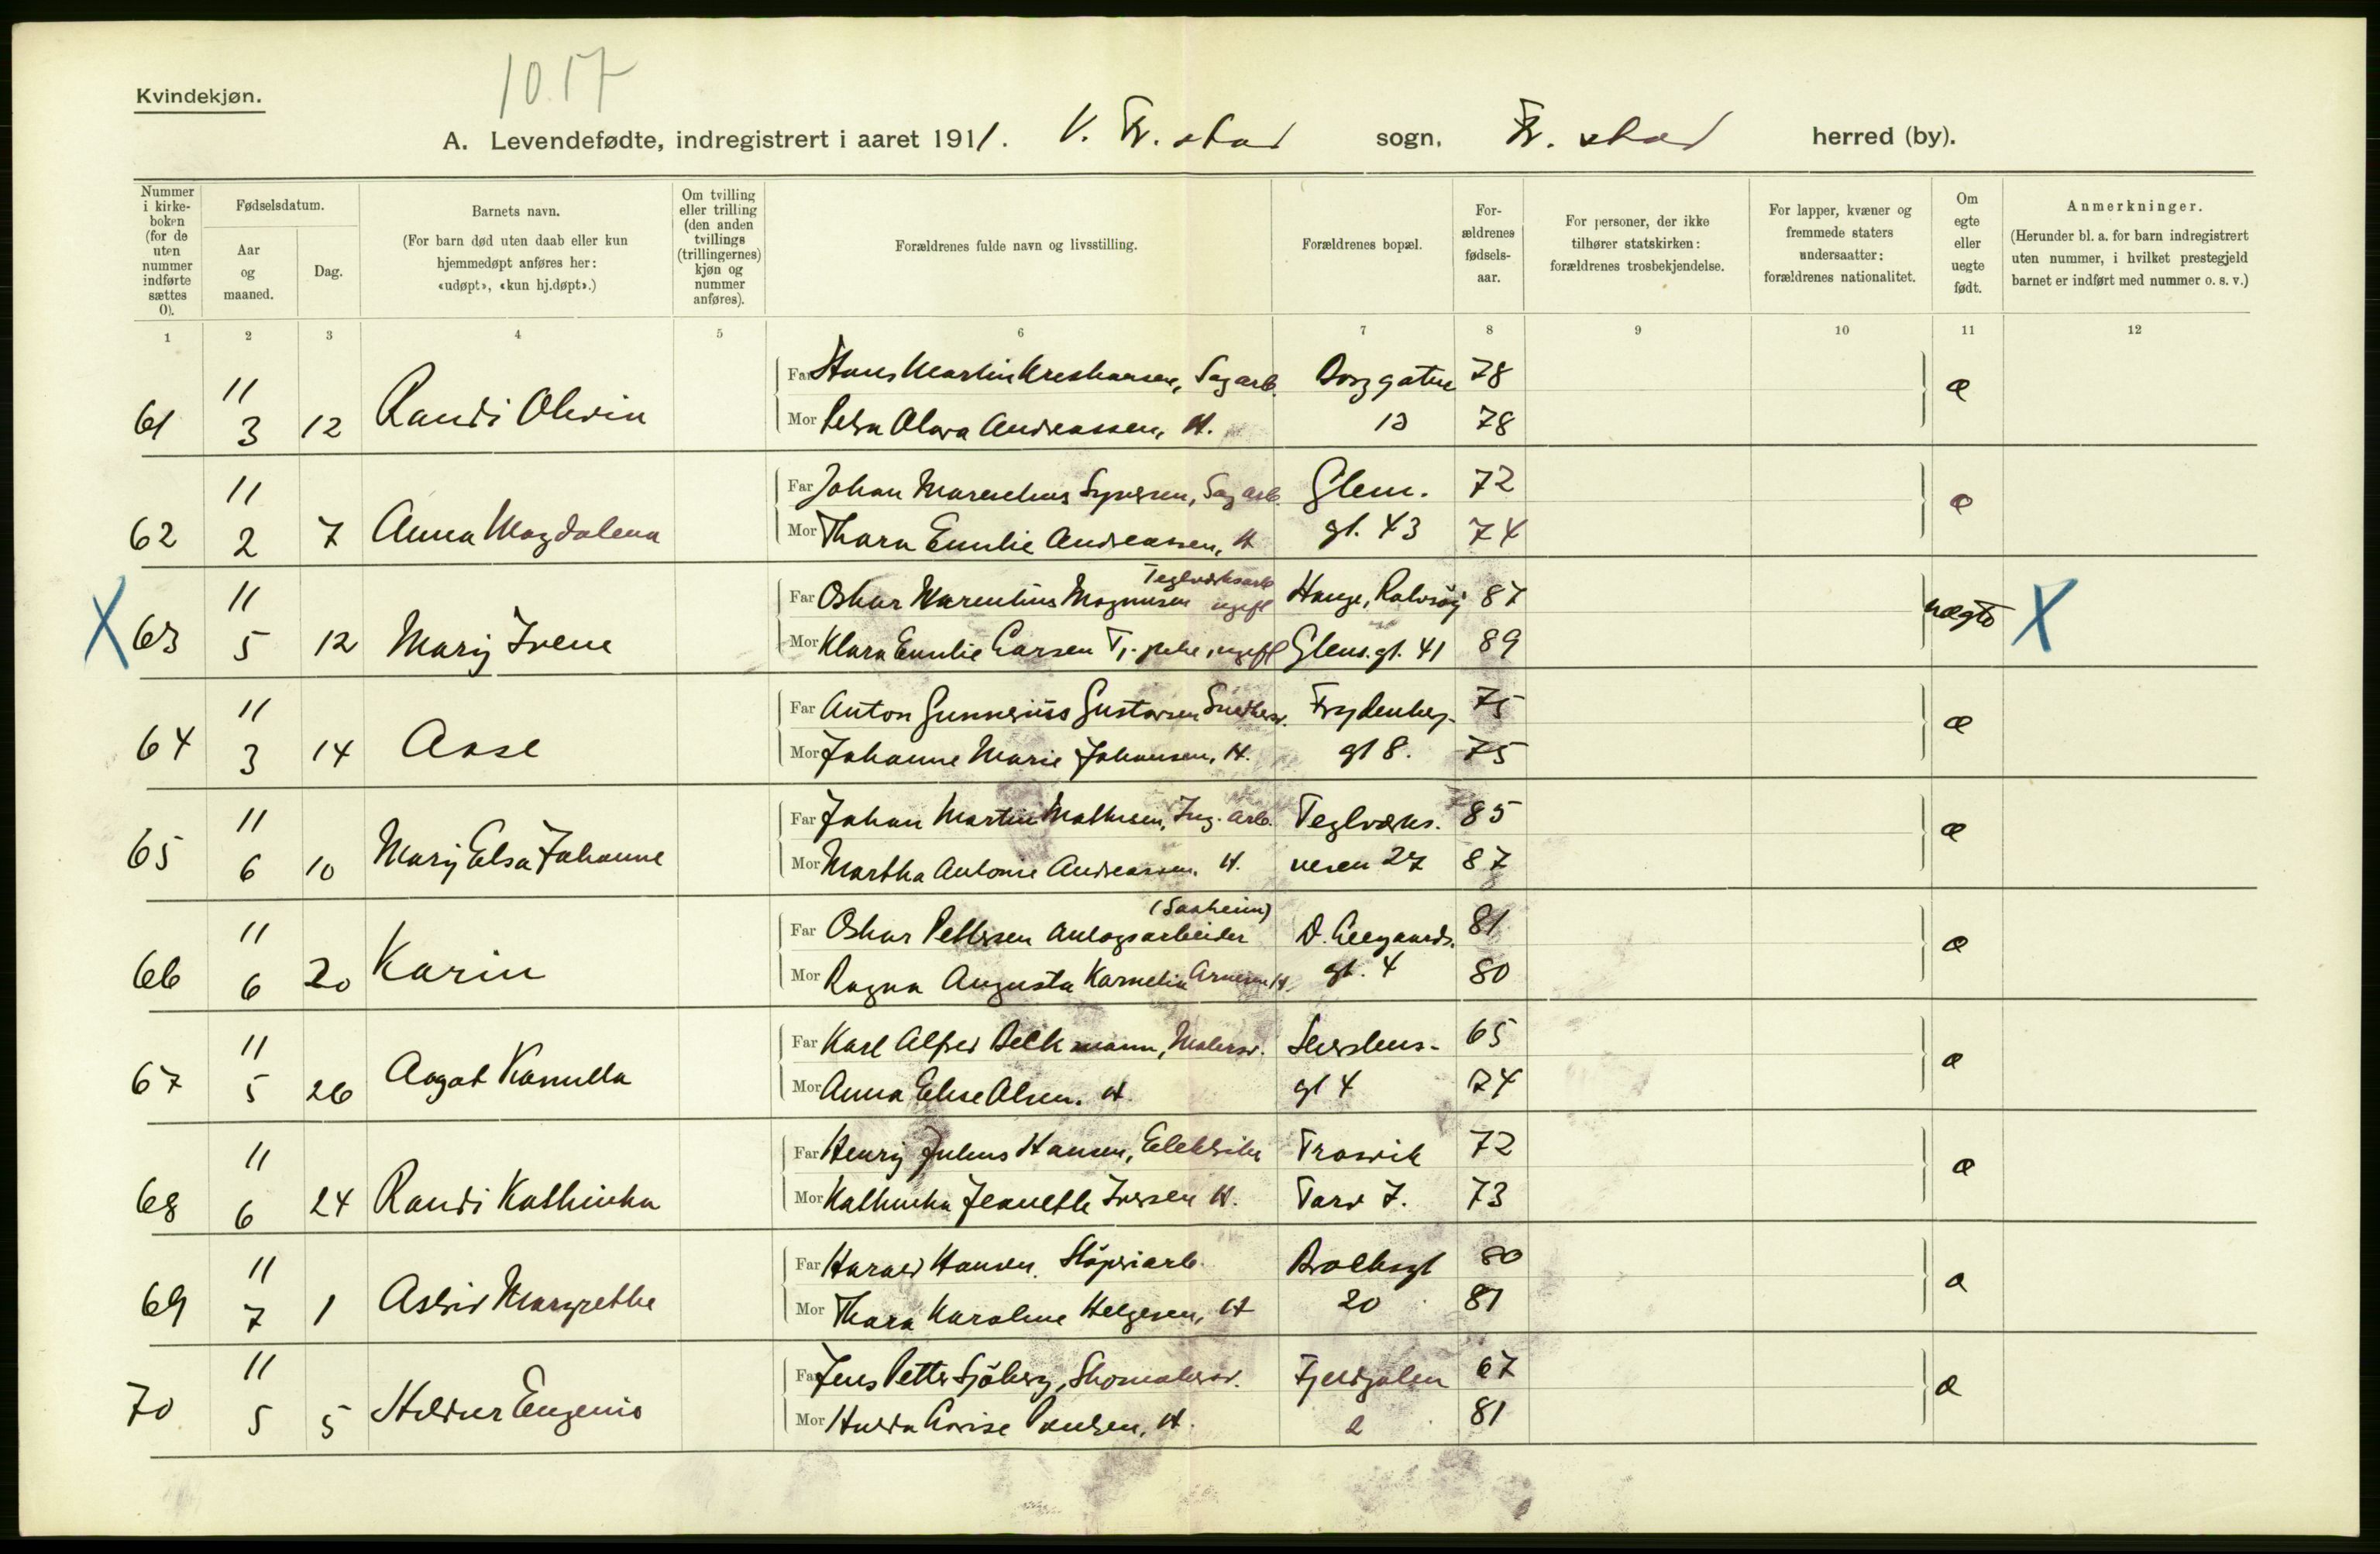 Kvindekjøn.
10.17
A. Levendefødte, indregistrert i aaret 1911. V. Fr. stad sogn, Fr. stad herred (by).
Nummer i kirke-boken (for de uten nummer indførte sættes 0).
Fødselsdatum.
Aar og maaned.
Dag.
Barnets navn.
(For barn død uten daab eller kun hjemmedøpt anføres her: «udøpt», «kun hj.døpt».)
Om tvilling eller trilling (den anden tvillings (trillingernes) kjøn og nummer anføres).
Forældrenes fulde navn og livsstilling.
Forældrenes bopæl.
For-ældrenes fødsels-aar.
For personer, der ikke tilhører statskirken: forældrenes trosbekjendelse.
For lapper, kvæner og fremmede staters undersaatter: forældrenes nationalitet.
Om egte eller uegte født.
Anmerkninger.
(Herunder bl. a. for barn indregistrert uten nummer, i hvilket prestegjeld barnet er indført med nummer o. s. v.)
1 2 3 4 5 6 7 8 9 10 11 12
11 Far Hans Martin Kristiansen, Sagarb. 78 æ
61 3 12 Randi Olivin Mor Petra Olava Andreassen, H. 13 78
11 Far Johan Marenius Syversen, Sagarb. Glem. 72 æ
62 2 7 Anna Magdalena Mor Thora Emilie Andreassen, H gt. 43 74
Teglverksarb
11 Far Oskar Marentius Magnusen ugift Hauge, Rolvsøy 87 uægte X
X 63 5 12 Mary Irene Mor Klara Emilie Larsen Tj. pike, ugift Glem. gt. 41 89
11 Far Anton Gunnerius Gustavsen Snedkersv. Frydenberg- 75 æ
64 3 14 Aase Mor Johanne Marie Johansen, H. gt 8. 75
11 Far Johan Martin Mathisen, Sag. arb. Teglværks- 85 æ
65 6 10 Mary Elsa Johanne Mor Martha Antonie Andreassen. H. veien 27 87
(Saaheim)
11 Far Oskar Pettersen Anlægsarbeider O. Aregaards. 81 æ
66 6 20 Karin Mor Ragna Augusta Karnelia Arnesen H. gt. 4 80
11 Far Karl Alfred Beckmann, Malersv. 65 æ
67 5 26 Aagot Kamilla Mor Anna Elise Olsen. H. gt 4 74
11 Far Henry Julius Hansen, Elektriker Trosvik 72 æ
68 6 24 Randi Kathinka Mor Kathinka Jeanette Iversen H. Torv 7. 73
11 Far Harald Hansen. Støperiarb. Brochsgt 80 æ
69 7 1 Astrid Margrethe Mor Thora Karoline Helgesen, H 20 81
11 Far Jens Petter Sjöberg, Skomakersv. 67 æ
70 5 5 Hildur Eugenie Mor Hulda Lovise Paulsen, H. 2 81